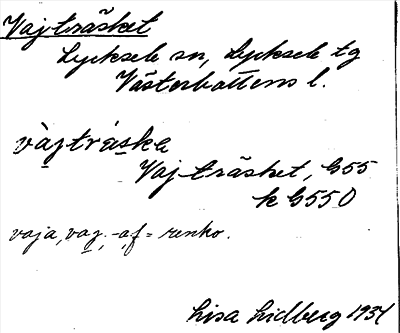 Vajträsket
Lycksele sn, Lycksele tg
Västerbottens l.
vàjtráska
Vajträsket, G55
k G55 O
vaja, vaj, -af = renko.
Lisa Lidberg 1934